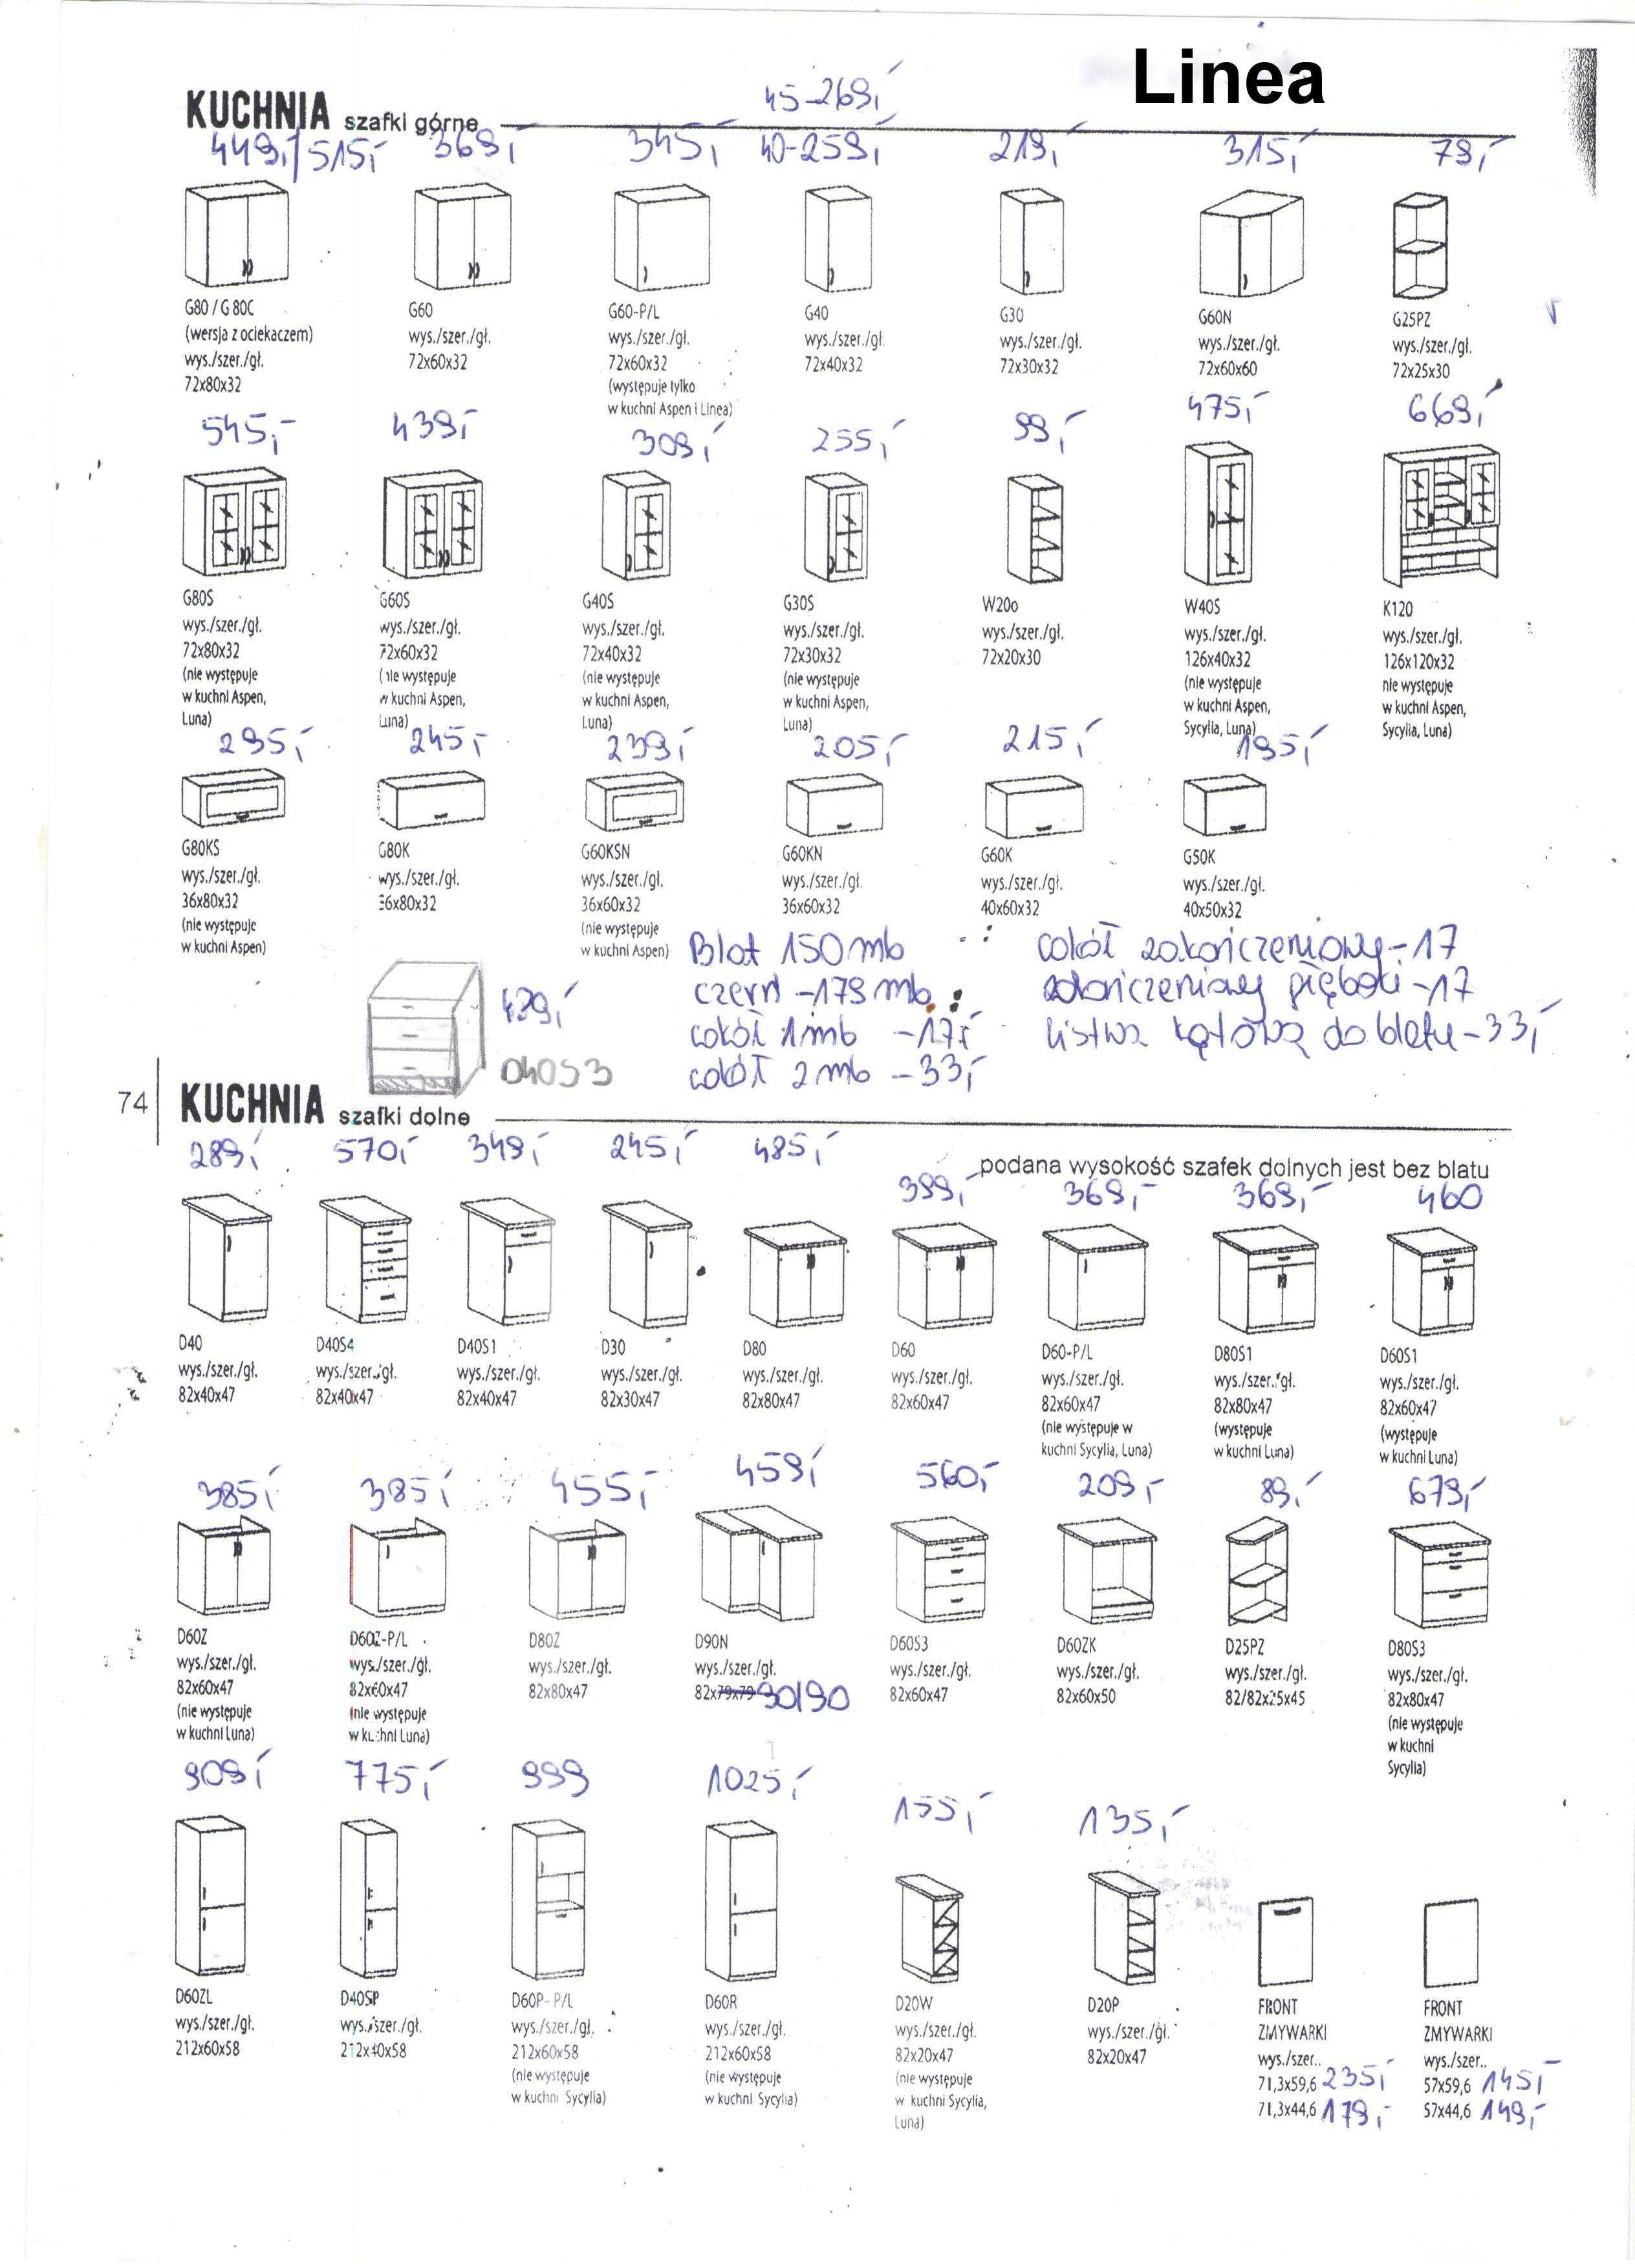 Linea
45-269,-
KUCHNIA szafki górne
449,-/515,- 369,- 345,- 40-259,- 219,- 315,- 79,-
G80 / G 80C
(wersja z ociekaczem)
wys./szer./gł.
72x80x32
G60
wys./szer./gł.
72x60x32
G60-P/L
wys./szer./gł.
72x60x32
(występuje tylko
w kuchni Aspen i Linea)
G40
wys./szer./gł.
72x40x32
G30
wys./szer./gł.
72x30x32
G60N
wys./szer./gł.
72x60x60
G25PZ
wys./szer./gł.
72x25x30
545,- 439,- 309,- 255,- 99,- 475,- 669,-
G80S
wys./szer./gł.
72x80x32
(nie występuje
w kuchni Aspen,
Luna)
G60S
wys./szer./gł.
72x60x32
(nie występuje
w kuchni Aspen,
Luna)
G40S
wys./szer./gł.
72x40x32
(nie występuje
w kuchni Aspen,
Luna)
G30S
wys./szer./gł.
72x30x32
(nie występuje
w kuchni Aspen,
Luna)
W20o
wys./szer./gł.
72x20x30
W40S
wys./szer./gł.
126x40x32
(nie występuje
w kuchni Aspen,
Sycylia, Luna)
K120
wys./szer./gł.
126x120x32
nie występuje
w kuchni Aspen,
Sycylia, Luna)
295,- 245,- 239,- 205,- 215,- 195,-
G80KS
wys./szer./gł.
36x80x32
(nie występuje
w kuchni Aspen)
G80K
wys./szer./gł.
36x80x32
G60KSN
wys./szer./gł.
36x60x32
(nie występuje
w kuchni Aspen)
G60KN
wys./szer./gł.
36x60x32
G60K
wys./szer./gł.
40x60x32
G50K
wys./szer./gł.
40x50x32
Blat 150 mb
czerń -179 mb
cokół 1 mb -17,-
cokół 2 mb -33,-
cokół zakończeniowy-17
zakończeniowy -17
listwa kątowa do blatu-33,-
439,-
D40S3
74
KUCHNIA szafki dolne
podana wysokość szafek dolnych jest bez blatu
289,- 570,- 349,- 245,- 485,- 399,- 369,- 369,- 460
D40
wys./szer./gł.
82x40x47
D40S4
wys./szer./gł.
82x40x47
D40S1
wys./szer./gł.
82x40x47
D30
wys./szer./gł.
82x30x47
D80
wys./szer./gł.
82x80x47
D60
wys./szer./gł.
82x60x47
D60-P/L
wys./szer./gł.
82x60x47
(nie występuje w
kuchni Sycylia, Luna)
D80S1
wys./szer./gł.
82x80x47
(występuje
w kuchni Luna)
D60S1
wys./szer./gł.
82x60x47
(występuje
w kuchni Luna)
385,- 385,- 455,- 459,- 560,- 209,- 89,- 679,-
D60Z
wys./szer./gł.
82x60x47
(nie występuje
w kuchni Luna)
D60Z-P/L
wys./szer./gł.
82x60x47
(nie występuje
w kuchni Luna)
D80Z
wys./szer./gł.
82x80x47
D90N
wys./szer./gł.
82x79x79 90/90
D60S3
wys./szer./gł.
82x60x47
D60ZK
wys./szer./gł.
82x60x50
D25PZ
wys./szer./gł.
82/82x25x45
D80S3
wys./szer./gł.
82x80x47
(nie występuje
w kuchni
Sycylia)
909,- 775,- 999 1025,- 155,- 135,-
D60ZL
wys./szer./gł.
212x60x58
D40SP
wys./szer./gł.
212x40x58
D60P-P/L
wys./szer./gł.
212x60x58
(nie występuje
w kuchni Sycylia)
D60R
wys./szer./gł.
212x60x58
(nie występuje
w kuchni Sycylia)
D20W
wys./szer./gł.
82x20x47
(nie występuje
w kuchni Sycylia,
Luna)
D20P
wys./szer./gł.
82x20x47
FRONT
ZMYWARKI
wys./szer..
71,3x59,6 235,-
71,3x44,6 179,-
FRONT
ZMYWARKI
wys./szer..
57x59,6 145,-
57x44,6 149,-